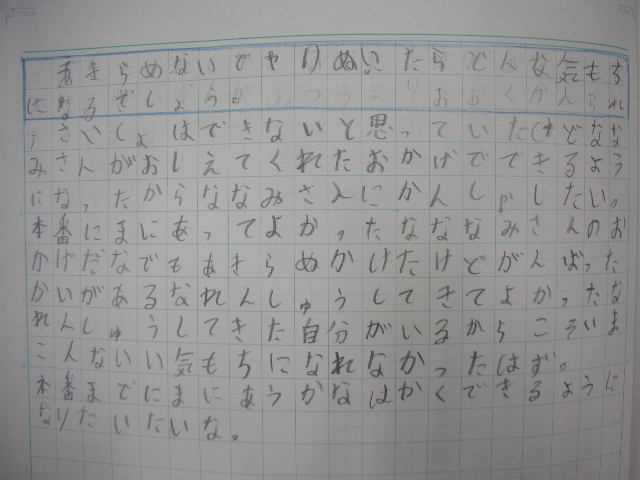 あきらめないでやりぬいたらどんな気もち
になるでしょうか。
さいしょはできないと思っていたけどなな
みさんがおしえてくれたおかげでできるよう
になったからななみさんにかんしゃしたい。
本番にまにあってよかったなななみさんのお
かげだなでもあきらめかけたけどがんばった
かいがあるなれんしゅうしてきてよかったな
れんしゅうしてきた自分がいるからこそいま
こんないい気もちになれなかったはず。
本番までにまにあうかなはかくできるように
なりたいたいな。